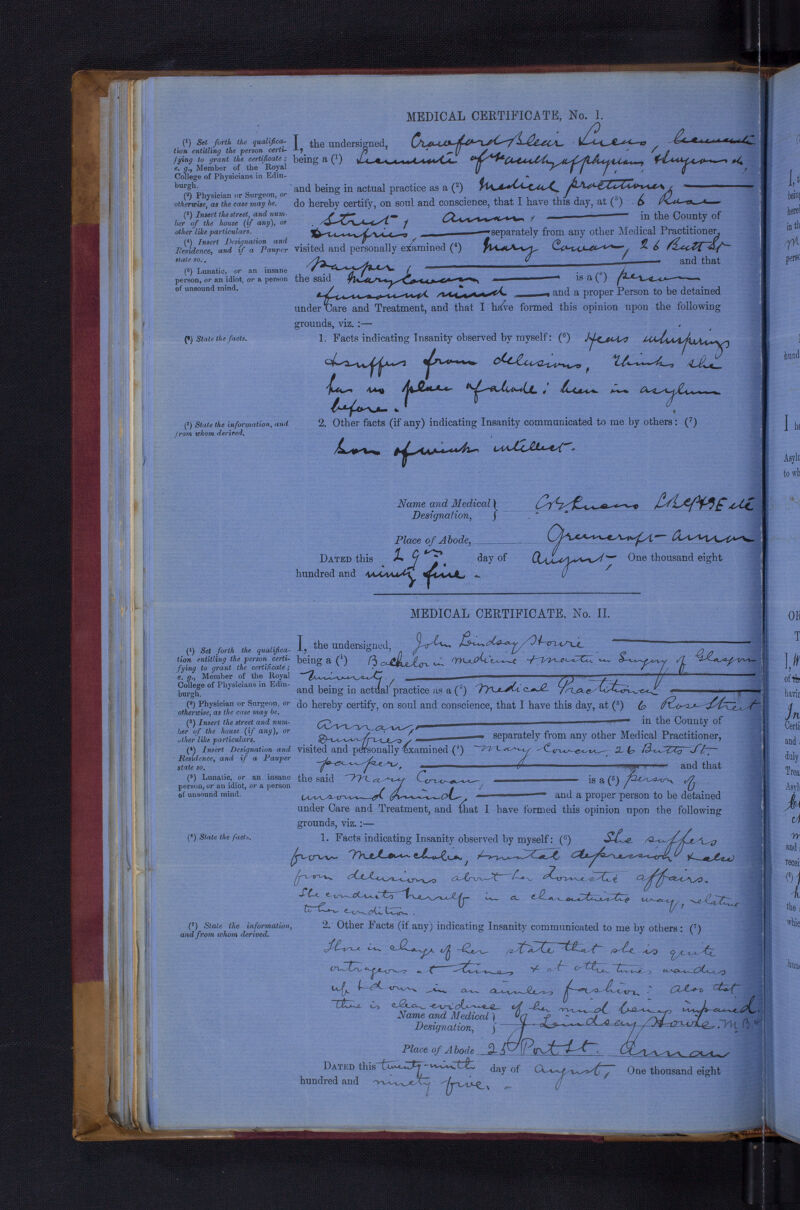 MEDICAL CERTIFICATE, No. I.
(¹) Set forth the qualifica-
tion entitling the person certi-
fying to grant the certificate;
e. g., Member of the Royal
College of Physicians in Edin-
burgh.
(²) Physician or Surgeon, or
otherwise, as the case may be.
(³) Insert the street, and num-
ber of the house (if any), or
other like particulars.
(⁴) Insert Designation and
Residence, and if a Pauper
state so.
(⁵) Lunatic, or an insane
person, or an idiot, or a person
of unsound mind.
I, the undersigned, Crawford Blair Lucas, Licentiate
being a (¹) Licentiate of Faculty of Physicians & Surgeons
and being in actual practice as a (²) Medical Practitioner,
do hereby certify, on soul and conscience, that I have this day, at (³) 6 Rose
Street, Annan, in the County of
Dumfries, separately from any other Medical Practitioner,
visited and personally examined (⁴) Mary Cowan, 26 Butts St
Pauper, and that
the said Mary Cowan is a (⁵) person
of unsound mind and a proper Person to be detained
under Care and Treatment, and that I have formed this opinion upon the following
grounds, viz. :—
(⁶) State the facts.
1. Facts indicating Insanity observed by myself: (⁶) Hears whisperings
& suffers from delusions, thinks she
has no place of abode; been in asylum
before.
(⁷) State the information, and
from whom derived.
2. Other facts (if any) indicating Insanity communicated to me by others: (⁷)
Son of weak intellect.
Name and Medical
Designation, }
Place of Abode, Greencroft Annan
DATED this 29th day of August One thousand eight
hundred and ninety five.
MEDICAL CERTIFICATE, No. II.
(¹) Set forth the qualifica-
tion entitling the person certi-
fying to grant the certificate;
e. g., Member of the Royal
College of Physicians in Edin-
burgh.
(²) Physician or Surgeon, or
otherwise, as the case may be.
(³) Insert the street and num-
ber of the house (if any), or
other like particulars.
(⁴) Insert Designation and
Residence, and if a Pauper
state so.
(⁵) Lunatic, or an insane
person, or an idiot, or a person
of unsound mind.
I, the undersigned, John Lindsay Howie
being a (¹) Bachelor in medicine & master in Surgery of Glasgow
University,
and being in actual practice as a (²) Medical Practitioner
do hereby certify, on soul and conscience, that I have this day, at (³) 6 Rose Street
Annan, in the County of
Dumfries, separately from any other Medical Practitioner,
visited and personally examined (⁴) Mary Cowan, 26 Butts St.
pauper, and that
the said Mary Cowan, is a (⁵) person of
unsound mind, and a proper person to be detained
under Care and Treatment, and that I have formed this opinion upon the following
grounds, viz. :—
(⁶) State the facts.
1. Facts indicating Insanity observed by myself: (⁶) She suffers
from Melancholia, & mental depression & also
from delusions about her domestic affairs.
She conducts herself in a characteristic way, relative
to her condition.
(⁷) State the information,
and from whom derived.
2. Other Facts (if any) indicating Insanity communicated to me by others: (⁷)
Those in charge of her state that she is quite
outrageous at times & at other times wanders
up & down in an aimless fashion: also that
there is clear evidence of her mind being impaired.
Name and Medical
Designation, } J Lindsay Howie. M.B
Place of Abode 25 Port St. Annan
DATED this twenty-ninth day of August, One thousand eight
hundred and ninety five.